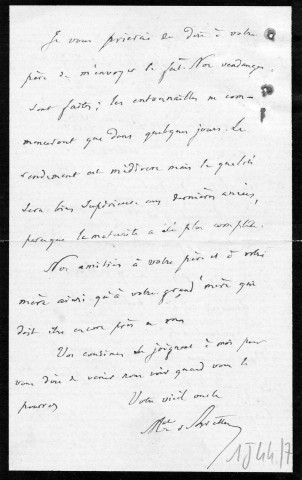 Je vous prierais de dire à votre
père de m'envoyer le fût. Nos vendanges
sont faites ; les entonnailles ne com-
menceront que dans quelques jours. Le
rendement est médiocre mais la qualité
sera bien supérieure aux dernières années,
parceque la maturité a été plus complète.
Nos amitiés à votre père et à votre
mère ainsi qu'à votre grand'mère qui
doit être encore près de vous
Vos cousines se joignent à moi pour
vous dire de venir nous voir quand vous le
pourrez
Votre vieil oncle
1J44/7